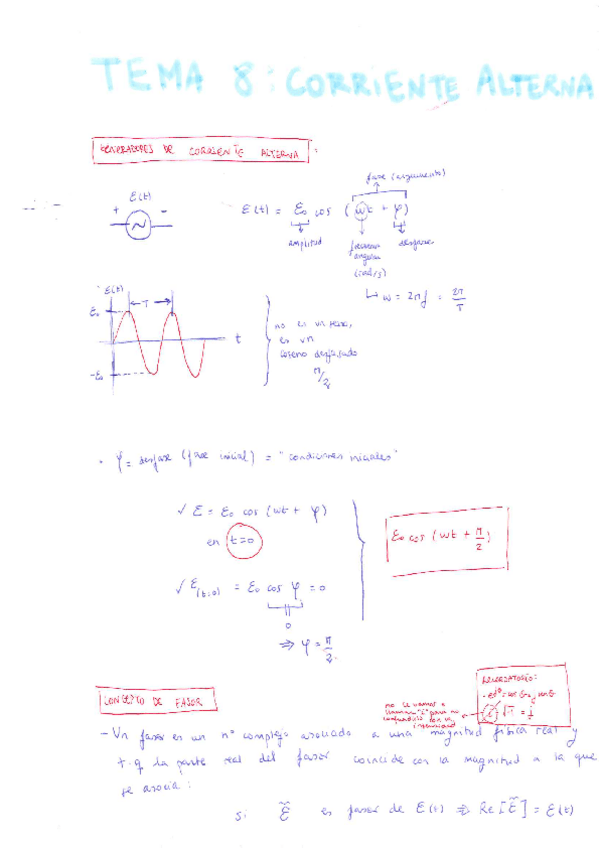 TEMA 8: CORRIENTE ALTERNA
GENERADORES DE CORRIENTE ALTERNA :
fase (argumento)
ε(t)
+ ~ -
ε(t) = ε₀ cos (ωt + φ)
amplitud
angular
desfase
(rad/s)
↳ ω = 2πf = 2π/T
ε(t)
ε₀
←T→
t
-ε₀
no es un seno,
es un
coseno desfasado
π/2
• φ = desfase (fase inicial) = "condiciones iniciales"
√ ε = ε₀ cos (ωt + φ)
en t=0
ε₀ cos (ωt + π/2)
√ ε(t=0) = ε₀ cos φ = 0
0
⇒ φ = π/2.
CONCEPTO DE FASOR
RECORDATORIO:
no le vamos a
llamar "i" para no
confundirlo con la
intensidad
√-1 = j
- Un fasor es un nº complejo asociado a una magnitud física real y
t.q la parte real del fasor coincide con la magnitud a la que
se asocia:
si ε̃ es fasor de ε(t) ⇒ Re[ε̃] = ε(t)